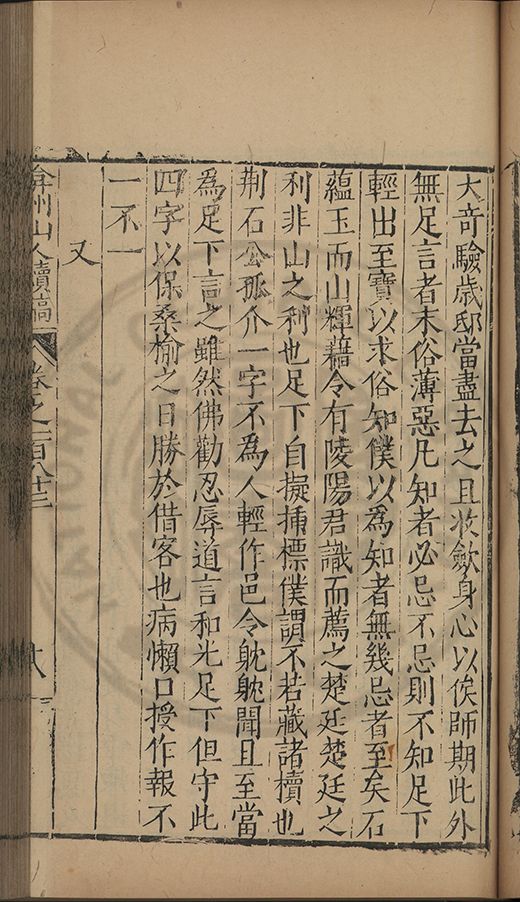 大奇驗歲邸當盡去之且收斂身心以俟師期此外
無足言者末俗薄惡凡知者必忌不忌則不知足下
輕出至寶以求俗知僕以為知者無幾忌者至矣石
蘊玉而山輝藉令有陵陽君識而薦之楚廷楚廷之
利非山之利也足下自擬插標僕謂不若藏諸櫝也
荆石公孤介一字不為人輕作邑令躭躭聞且至當
為足下言之雖然佛勸忍辱道言和光足下但守此
四字以保桑榆之日勝於借客也病懶口授作報不
一不一
又
弇州山人續稿
卷之一百八十三
十八